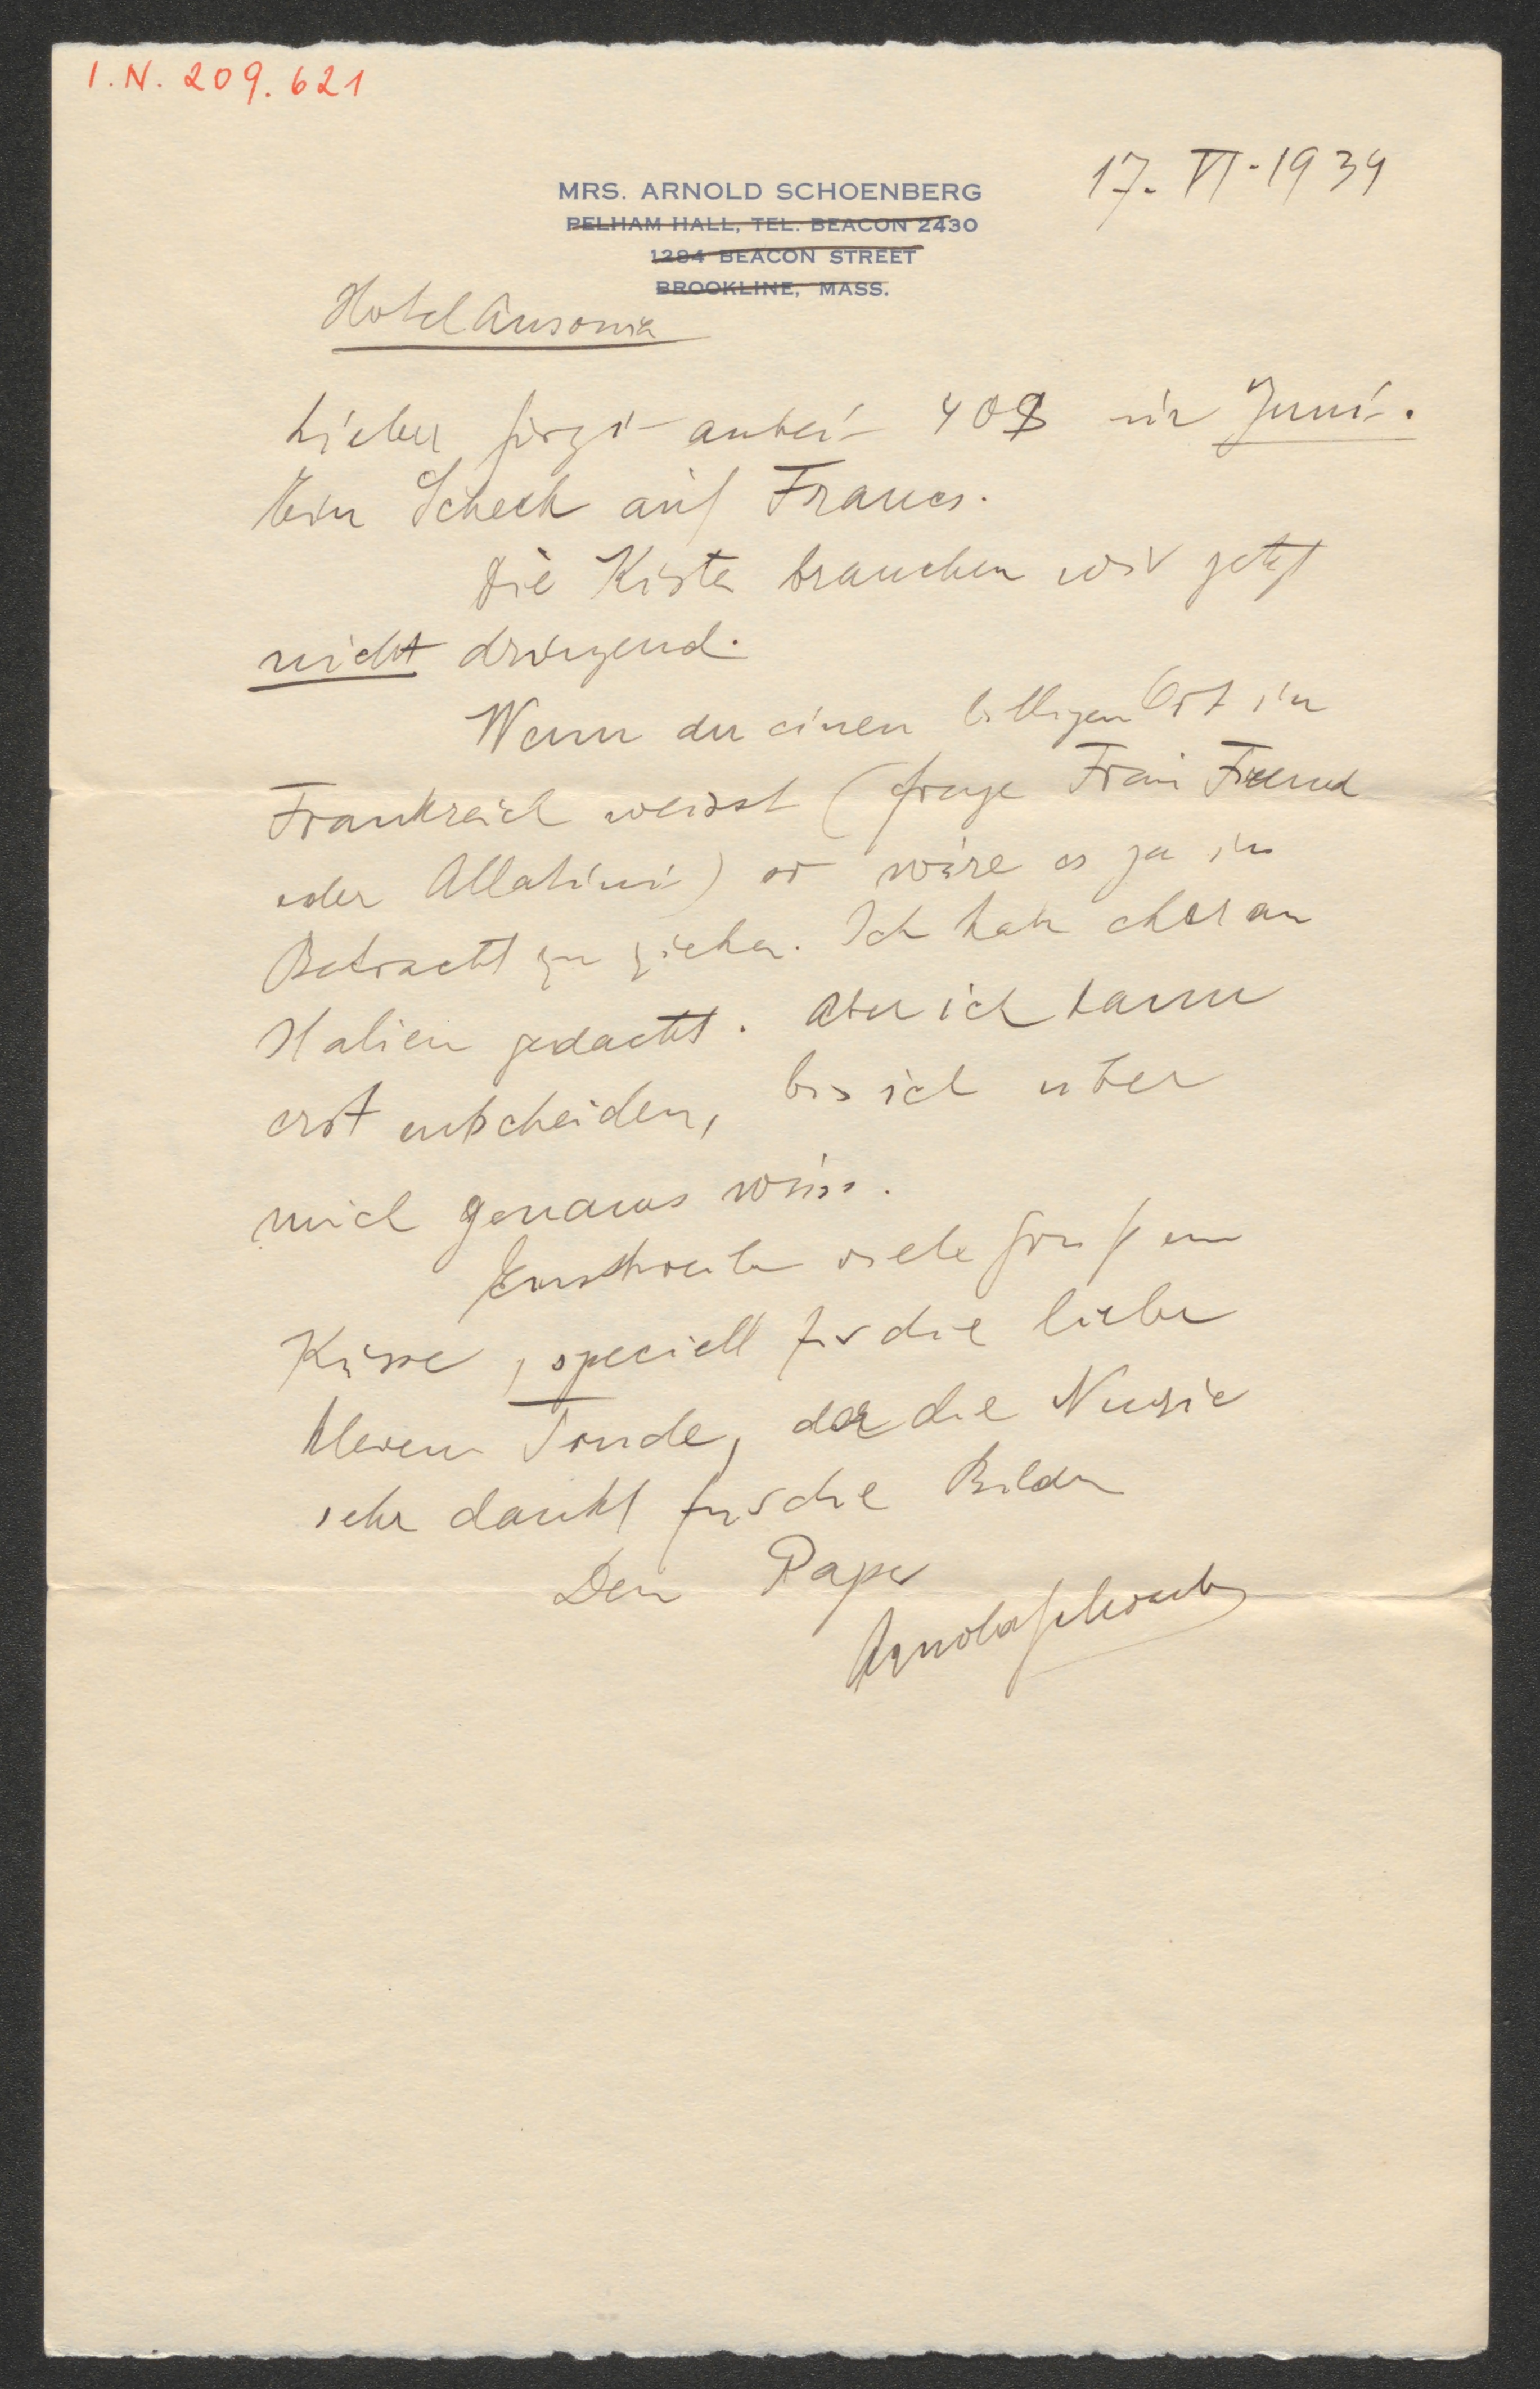 I.N. 209.621
17. VI. 1934
MRS. ARNOLD SCHOENBERG
PELHAM HALL, TEL. BEACON 2430
1284 BEACON STREET
BROOKLINE, MASS.
Hotel Ansonia
Lieber Görgi - anbei - 40$ für Juni.
Ein Scheck auf Francs.
Die Kiste brauchen wir jetzt
nicht dringend.
Wenn du einen billigen Ort in
Frankreich weisst (frage Frau Freund
oder Allatini) so wäre es ja in
Betracht zu ziehen. Ich habe eher an
Italien gedacht. Aber ich kann
erst entscheiden, bis ich über
mich genaues weiss.
Einstweilen viele Grüße
Küsse, speciell für die liebe
kleine Trude, der die Nurie
sehr dankt für die Bilder
Dein Papa
Arnold Schoenberg